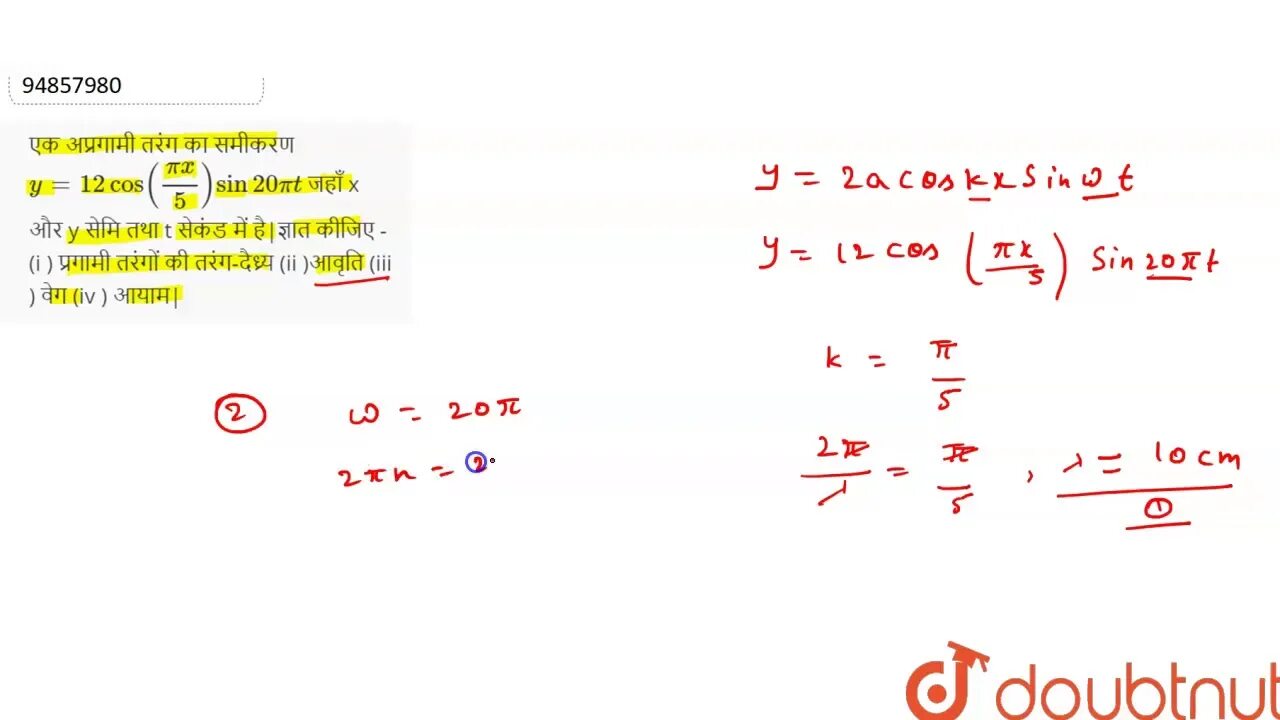 94857980
एक अप्रगामी तरंग का समीकरण
y = 12 cos(πx/5) sin 20πt जहाँ x
और y सेमि तथा t सेकंड में है|ज्ञात कीजिए -
(i ) प्रगामी तरंगों की तरंग-दैध्र्य (ii )आवृति (iii
) वेग (iv ) आयाम|
y = 2a cos kx Sin ω t
y = 12 cos (πx/5) Sin 20πt
k = π/5
2π/λ = π/5 , λ = 10 cm
①
② ω = 20π
2πn = 2
doubtnut